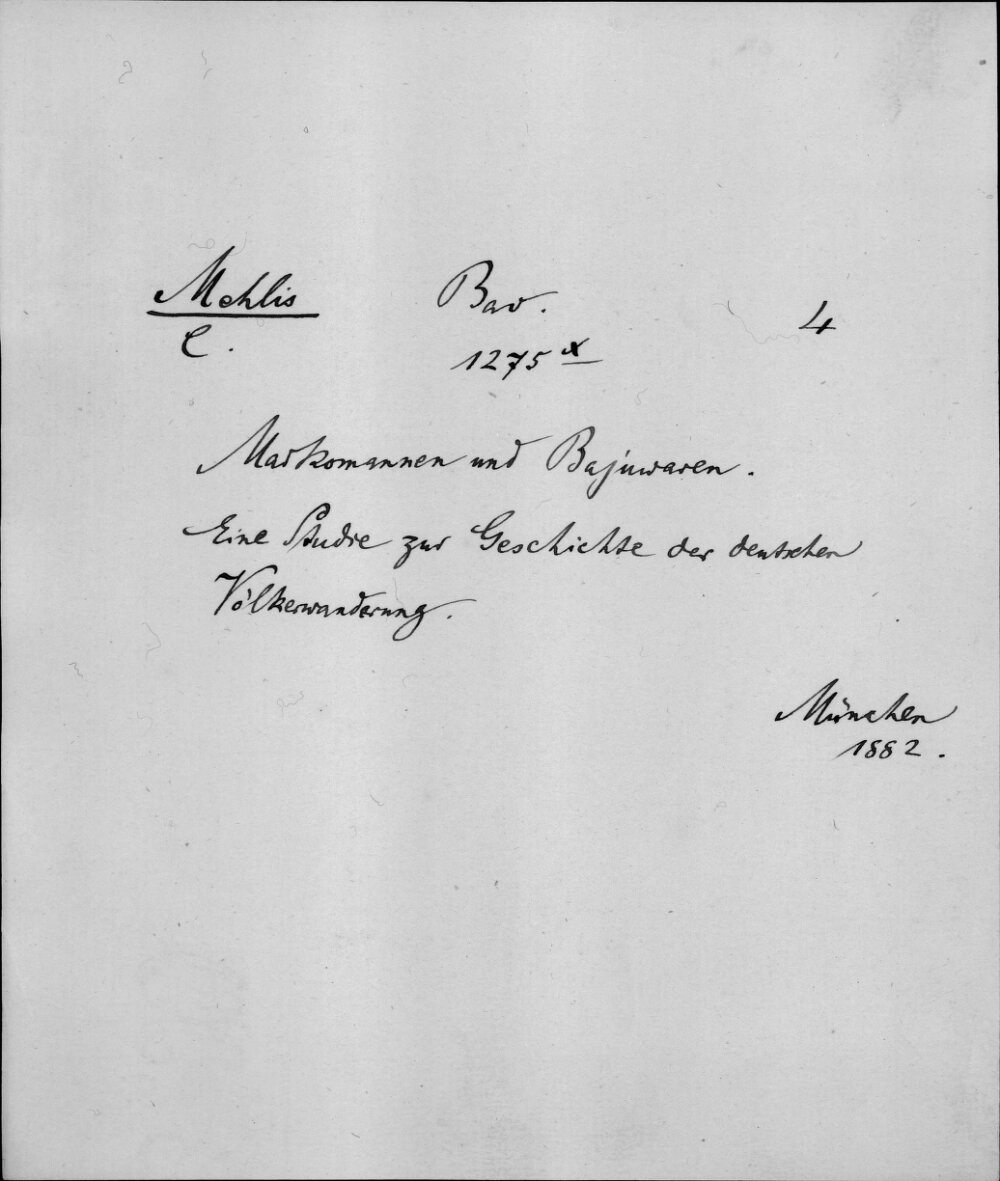 Mehlis Bav. 4
C. 1275 x
Markomannen und Bajuwaren.
Eine Studie zur Geschichte der deutschen
Völkerwanderung.
München
1882.